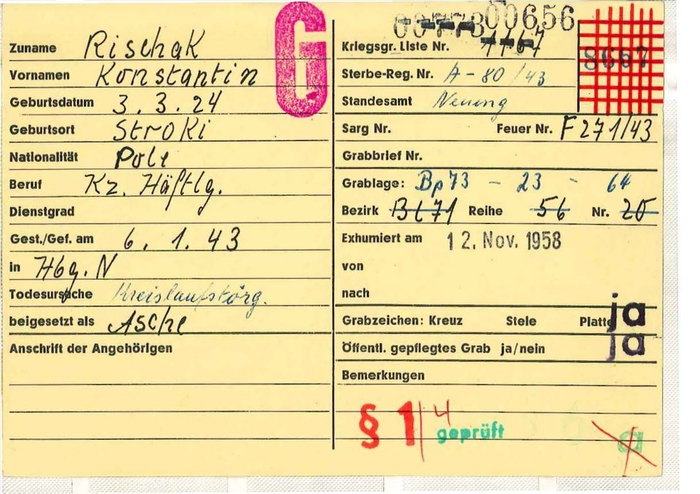 G
Zuname Rischak
Vornamen Konstantin
Geburtsdatum 3. 3. 24
Geburtsort Stroki
Nationalität Pole
Beruf Kz. Häftlg.
Dienstgrad
Gest./Gef. am 6. 1. 43
in Hbg. N
Todesursache Kreislaufstörg.
beigesetzt als Asche
Anschrift der Angehörigen
00656
Kriegsgr. Liste Nr. 1167
8667
Sterbe-Reg. Nr. A-80/43
Standesamt Neueng
Sarg Nr. Feuer Nr. F 271/43
Grabbrief Nr.
Grablage: Bp73 - 23 - 64
Bezirk Bl71 Reihe 56 Nr. 20
Exhumiert am 12. Nov. 1958
von
nach
Grabzeichen: Kreuz Stele Platte ja
Öffentl. gepflegtes Grab ja/nein ja
Bemerkungen
§ 1/4
geprüft